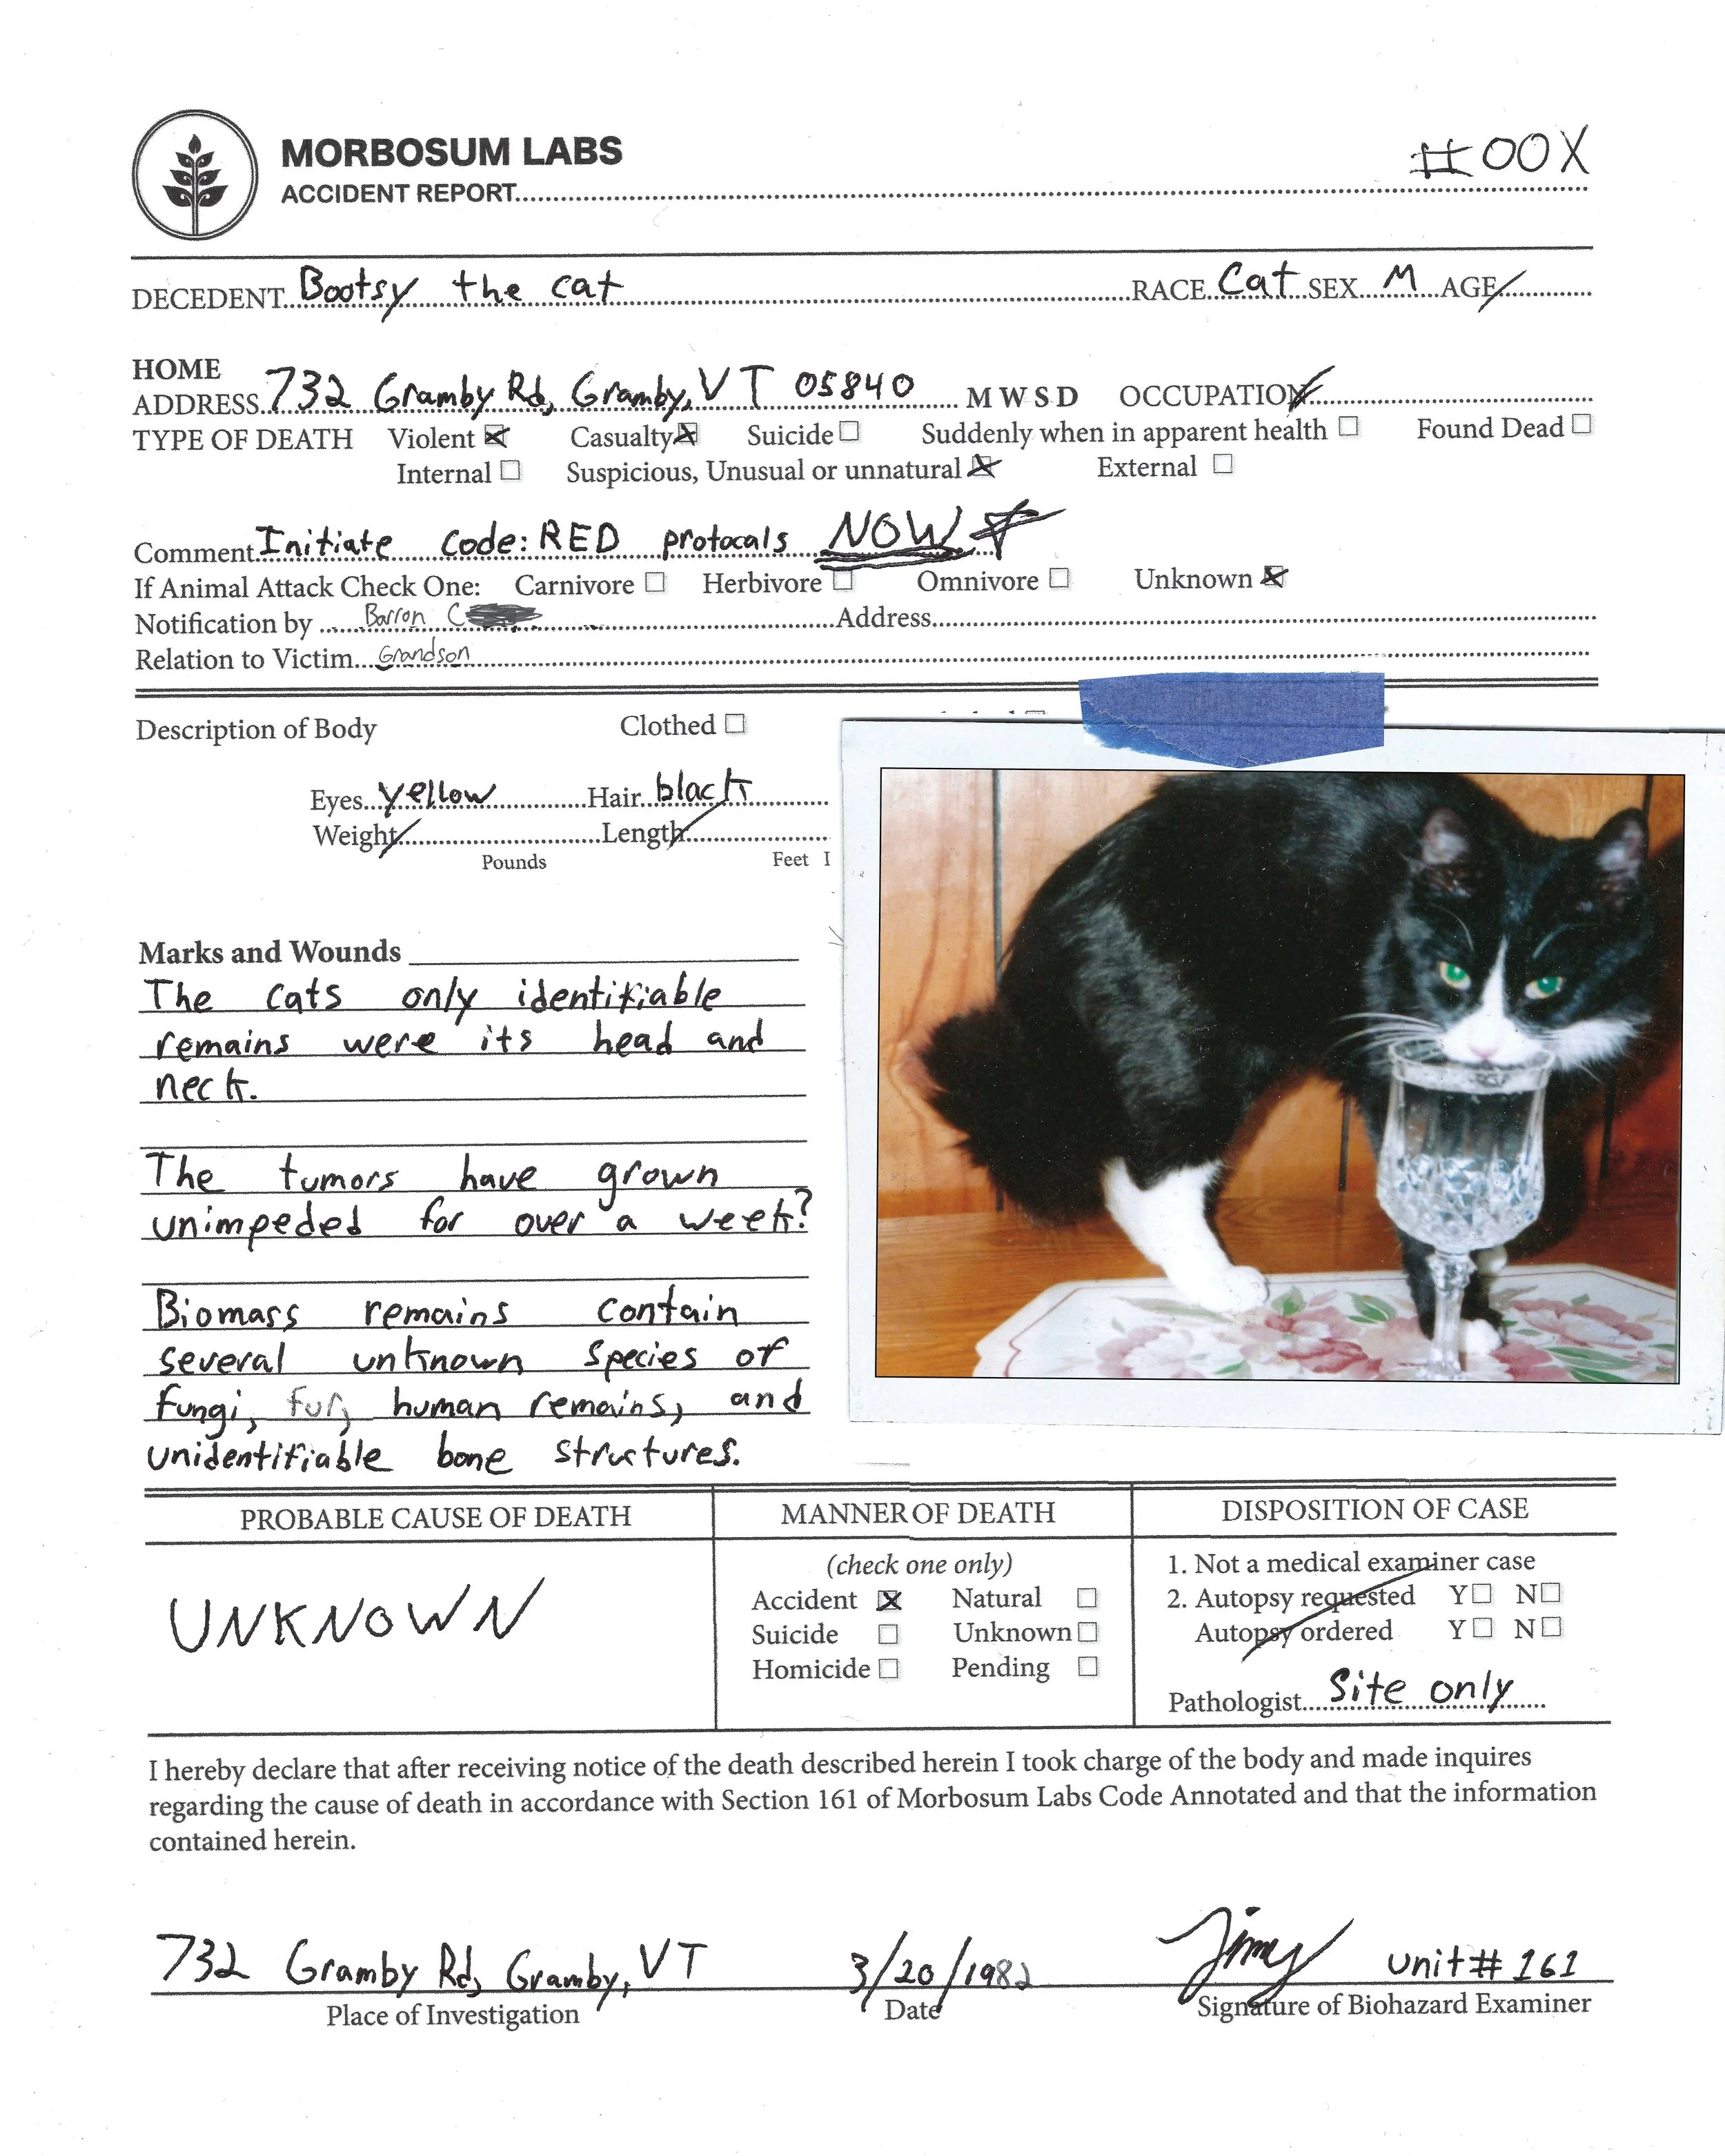 MORBOSUM LABS
#00X
ACCIDENT REPORT
DECEDENT Bootsy the cat RACE Cat SEX M AGE
HOME
ADDRESS 732 Gramby Rd, Gramby, VT 05840 M W S D OCCUPATION
TYPE OF DEATH Violent Casualty Suicide Suddenly when in apparent health Found Dead
Internal Suspicious, Unusual or unnatural External
Comment Initiate code: RED protocals NOW
If Animal Attack Check One: Carnivore Herbivore Omnivore Unknown
Notification by Barron C Address
Relation to Victim Grandson
Description of Body Clothed
Eyes yellow Hair black
Weight Length
Pounds Feet I
Marks and Wounds
The cats only identifiable
remains were its head and
neck.
The tumors have grown
unimpeded for over a week?
Biomass remains contain
several unknown species of
fungi, fur, human remains, and
unidentifiable bone structures.
PROBABLE CAUSE OF DEATH MANNER OF DEATH DISPOSITION OF CASE
UNKNOWN
(check one only)
Accident Natural
Suicide Unknown
Homicide Pending
1. Not a medical examiner case
2. Autopsy requested Y N
Autopsy ordered Y N
Pathologist Site only
I hereby declare that after receiving notice of the death described herein I took charge of the body and made inquires
regarding the cause of death in accordance with Section 161 of Morbosum Labs Code Annotated and that the information
contained herein.
732 Gramby Rd, Gramby, VT 3/20/1982 Jimmy unit# 161
Place of Investigation Date Signature of Biohazard Examiner